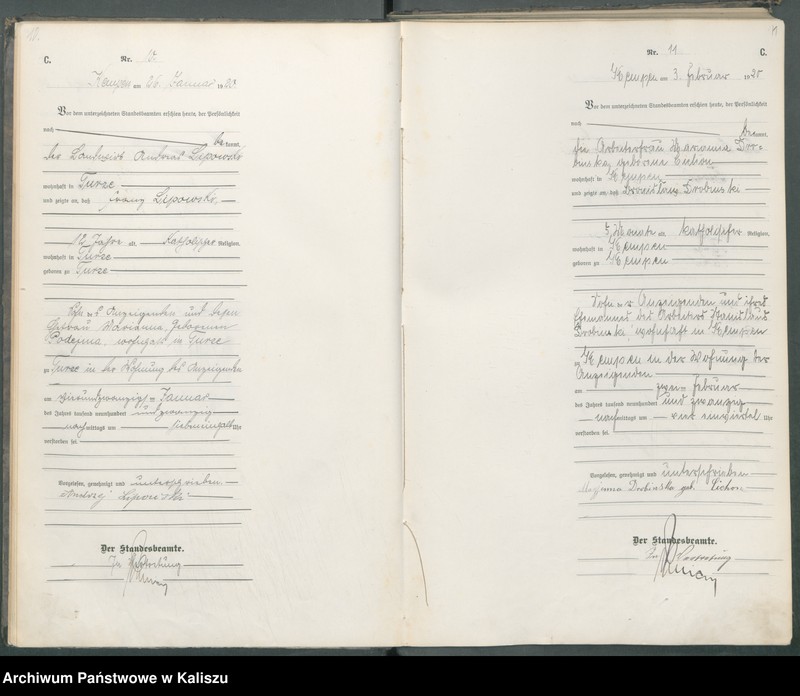 C.
Nr. 10
Kempen am 26. Januar 1920
Vor dem unterzeichneten Standesbeamten erschien heute, der Persönlichkeit
nach
bekannt,
der Landwirt Andreas Lipowski
wohnhaft in Turze
und zeigte an, daß Lipowski,
12 Jahre alt, katholischer Religion,
wohnhaft in Turze
geboren zu Turze
Sohn des Anzeigenden und seiner
Ehefrau Marianna geborenen
wohnhaft in Turze
zu Turze in der Wohnung des Anzeigenden
am Januar
des Jahres tausend neunhundert und zwanzig
nachmittags um Uhr
verstorben sei.
Vorgelesen, genehmigt und unterschrieben.
Andrzej Lipowski
Der Standesbeamte.
In Vertretung
11
Nr. 11
C.
Kempen am 3. Februar 1920
Vor dem unterzeichneten Standesbeamten erschien heute, der Persönlichkeit
nach
bekannt,
die Arbeiterfrau Marianna Dro-
binska, geborene Cichon
wohnhaft in Kempen
und zeigte an, daß Drobinski
Monate alt, katholischer Religion,
wohnhaft in Kempen
geboren zu Kempen
Sohn der Anzeigenden und ihres
Ehemannes des Arbeiters Stanislaus
Drobinski, wohnhaft in Kempen
zu Kempen in der Wohnung der
Anzeigenden
am zwei Februar
des Jahres tausend neunhundert und zwanzig
nachmittags um viereinviertel Uhr
verstorben sei.
Vorgelesen, genehmigt und unterschrieben
Drobinska geb. Cichon
Der Standesbeamte.
In Vertretung
Archiwum Państwowe w Kaliszu